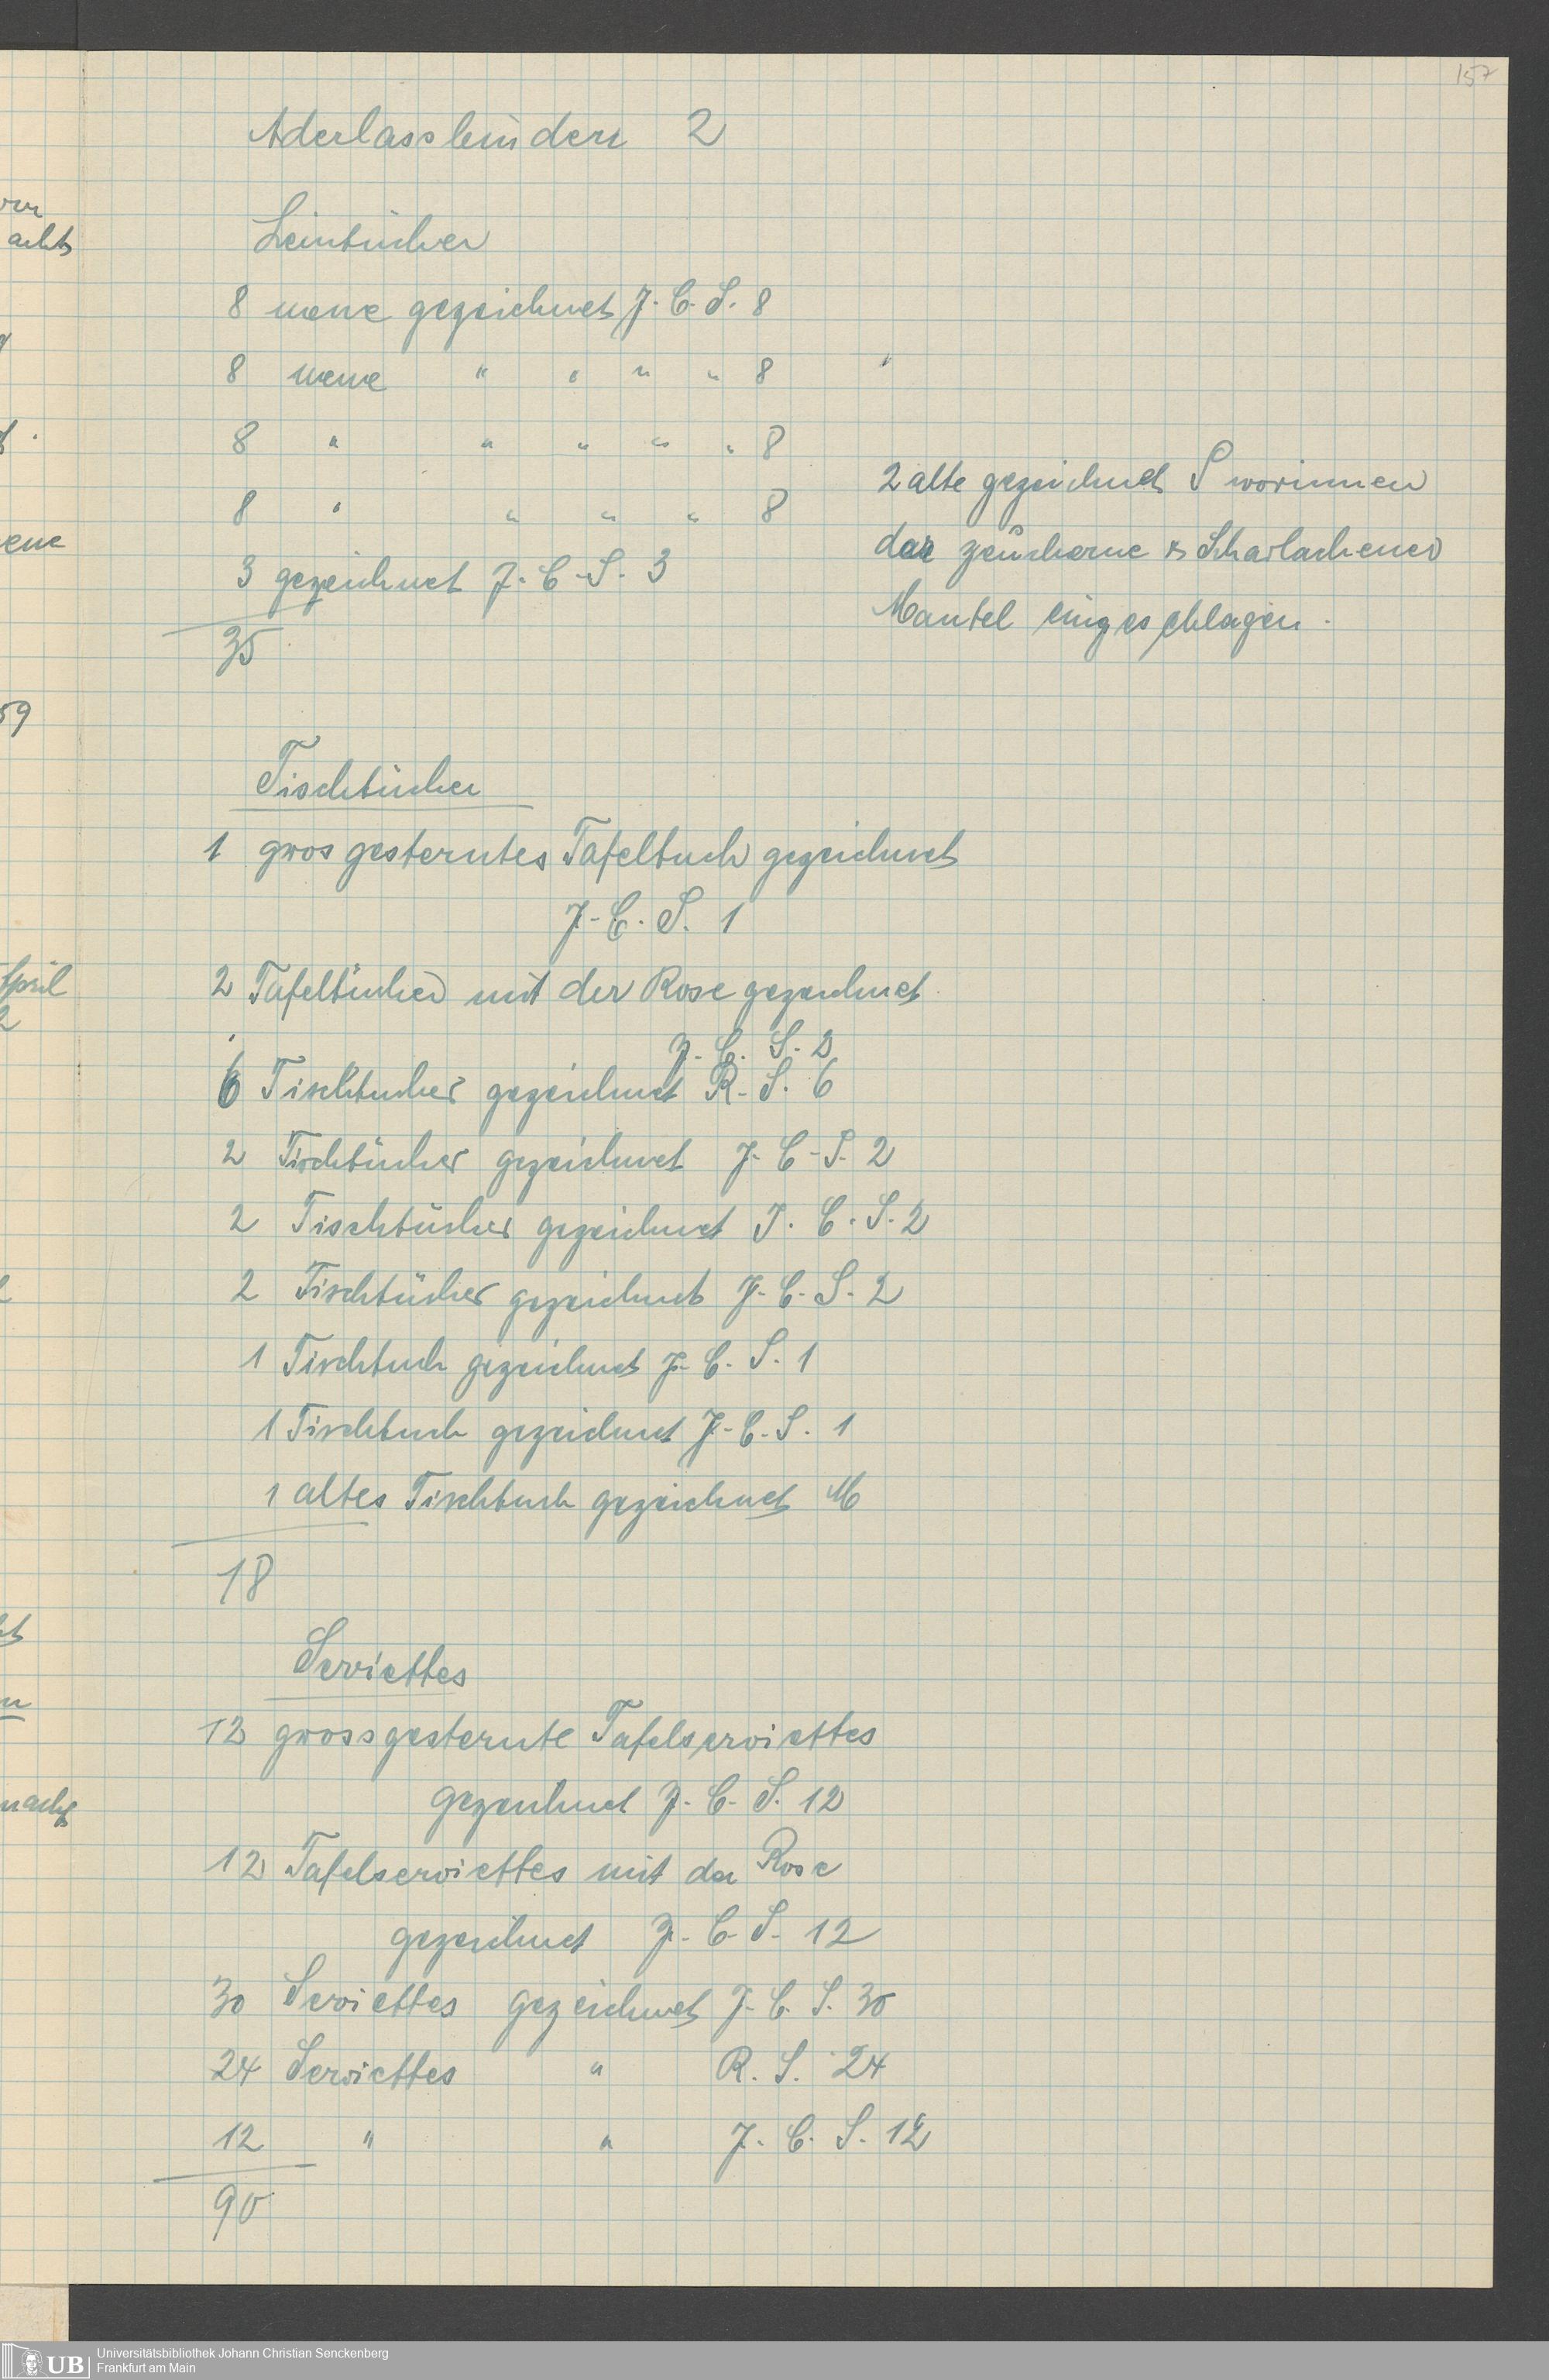 157
Aderlassbinden 2
Leintücher
8 neue gezeichnet J. C. S. 8
8 neue " " " " 8
8 " " " " " 8
8 " " " " 8
3 gezeichnet J. C. S. 3
35
2 alte gezeichnet S worinnen
der zeucherne & Scharlachener
Mantel eingeschlagen.
Tischtücher
1 gros gesterntes Tafeltuch gezeichnet
J. C. S. 1
2 Tafeltücher mit der Rose gezeichnet
J. C. S. 2
6 Tischtücher gezeichnet R. S. 6
2 Tischtücher gezeichnet J. C. S. 2
2 Tischtücher gezeichnet J. C. S. 2
2 Tischtücher gezeichnet J. C. S. 2
1 Tischtuch gezeichnet J. C. S. 1
1 Tischtuch gezeichnet J. C. S. 1
1 altes Tischtuch gezeichnet M
18
Serviettes
12 grossgesternte Tafelserviettes
gezeichnet J. C. S. 12
12 Tafelserviettes mit der Rose
gezeichnet J. C. S. 12
30 Serviettes gezeichnet J. C. S. 30
24 Serviettes " R. S. 24
12 " " J. C. S. 12
90
UB
Universitätsbibliothek Johann Christian Senckenberg
Frankfurt am Main